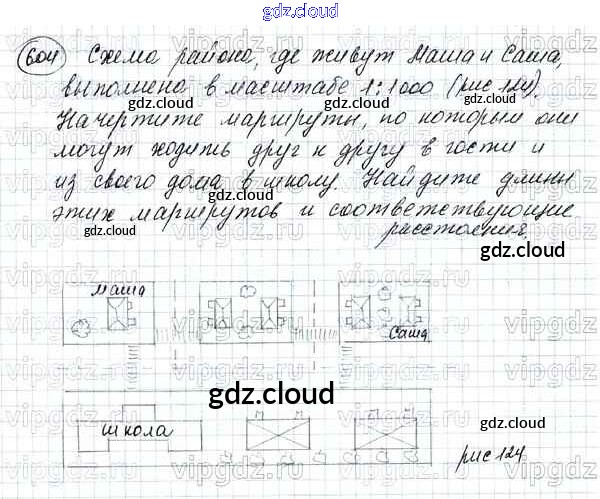 gdz.cloud
604 Схема района, где живут Маша и Саша,
выполнена в масштабе 1:1000 (рис 124).
gdz.cloud
gdz.cloud
Начертите маршруты, по которым они
gdz.cloud
могут ходить друг к другу в гости и
из своего дома в школу. Найдите длины
gdz.cloud
этих маршрутов и соответствующие
gdz.cloud
расстояния
gdz.cloud
Маша
Саша
gdz.cloud
gdz.cloud
школа
gdz.cloud
рис 124
gdz.cloud